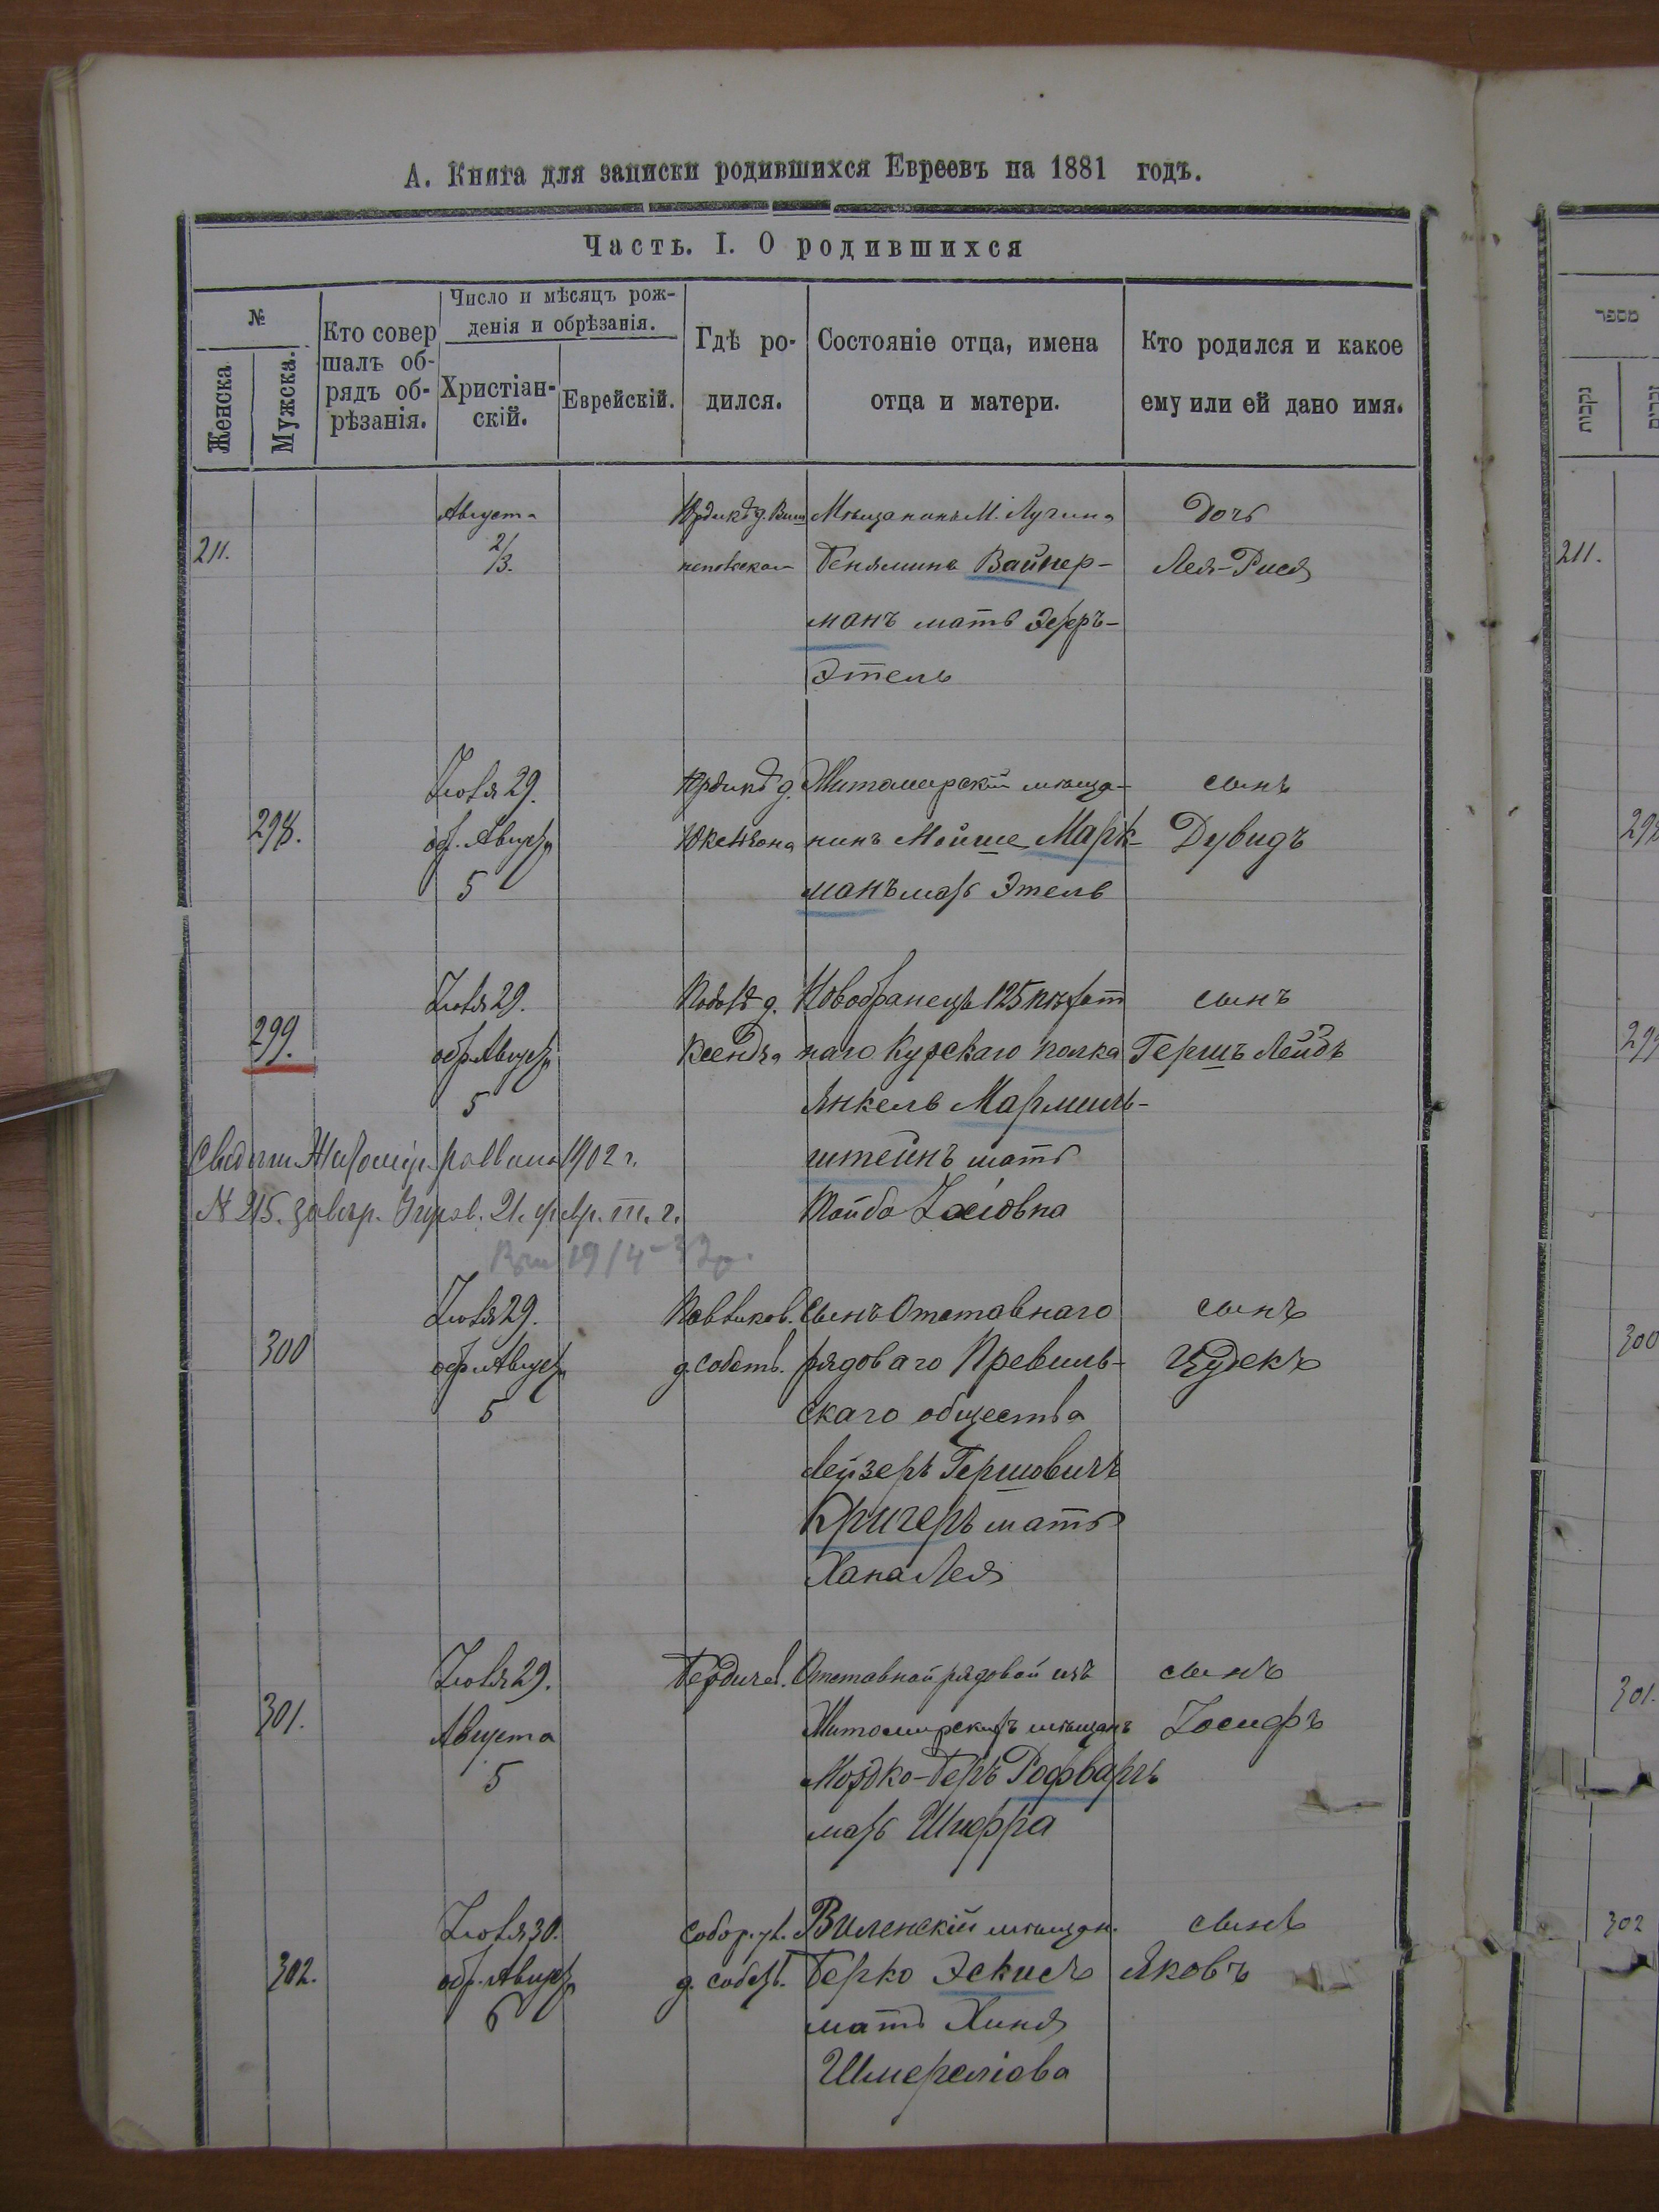 А. Книга для записки родившихся Евреевъ на 1881 годъ.
Часть. I. О родившихся
№
Женска
Мужска.
Кто совер
шалъ об-
рядъ об-
рѣзанія.
Число и мѣсяцъ рож-
денія и обрѣзанія.
Христіан-
скій.
Еврейскій.
Гдѣ ро-
дился.
Состояніе отца, имена
отца и матери.
Кто родился и какое
ему или ей дано имя.
מספר
נקבות
211.
Августа
2/3.
Мѣщанинъ М. Лугина
Бенляминъ Вайнер-
манъ мать
Этель
Дочь
Лея-Рися
211.
298.
Іюля 29.
обр. Август
5
Житомирскій мѣща-
нинъ Мойше Марк-
манъ мать Этель
сынъ
Дувидъ
299.
Іюля 29.
обр. Август
5
д.
Ксендза
Новобранецъ 125 пѣхот
наго Курскаго полка
Янкель Мармиль-
штейнъ мать
Тайба Іосіовна
сынъ
Гершъ Лейбъ
1902 г.
№ 215.
300
Іюля 29.
обр. Август
5
д. собств.
сынъ Отставнаго
рядоваго
скаго общества
Лейзеръ Гершовичъ
Кригеръ мать
Хана Лея
сынъ
Іудекъ
300
301.
Іюля 29.
Августа
5
Бердичев.
Отставной рядовой изъ
Житомирскихъ мѣщанъ
Мордко-Беръ Рофваргъ
мать Шифра
сынъ
Іосифъ
301.
302.
Іюля 30.
обр. Август
6
Собор. ул.
д. собств.
Виленскій мѣщан.
Берко Эскисъ
мать Хиня
Шмереліова
сынъ
Яковъ
302